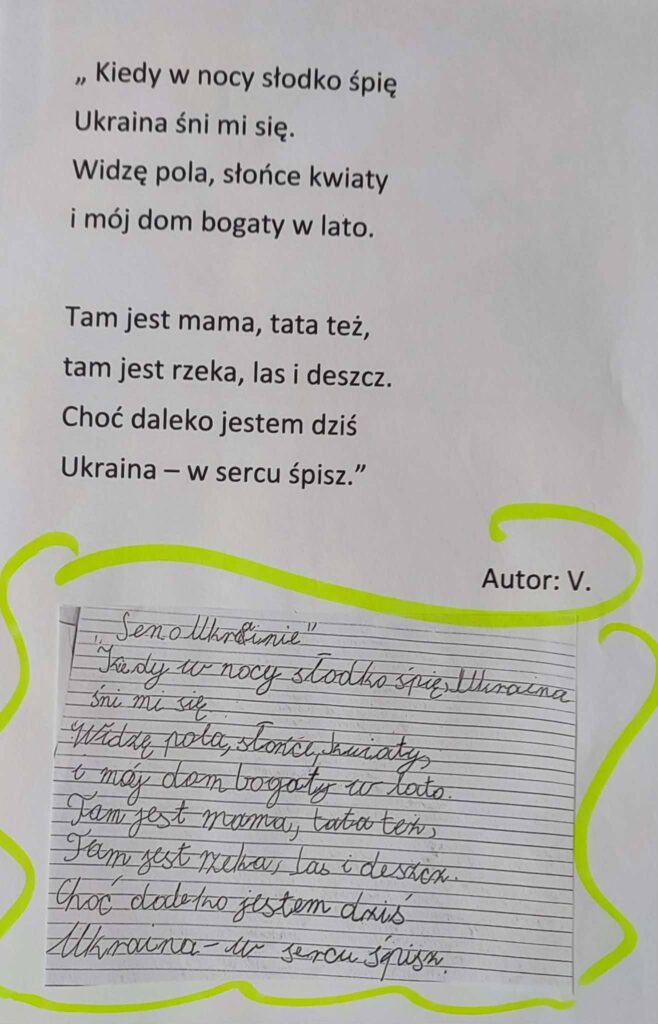 „ Kiedy w nocy słodko śpię
Ukraina śni mi się.
Widzę pola, słońce kwiaty
i mój dom bogaty w lato.
Tam jest mama, tata też,
tam jest rzeka, las i deszcz.
Choć daleko jestem dziś
Ukraina – w sercu śpisz.”
Autor: V.
„Sen o Ukrainie”
Kiedy w nocy słodko śpię, Ukraina
śni mi się.
Widzę pola, słońce, kwiaty,
i mój dom bogaty w lato.
Tam jest mama, tata też,
Tam jest rzeka, las i deszcz.
Choć daleko jestem dziś
Ukraina – w sercu śpisz.